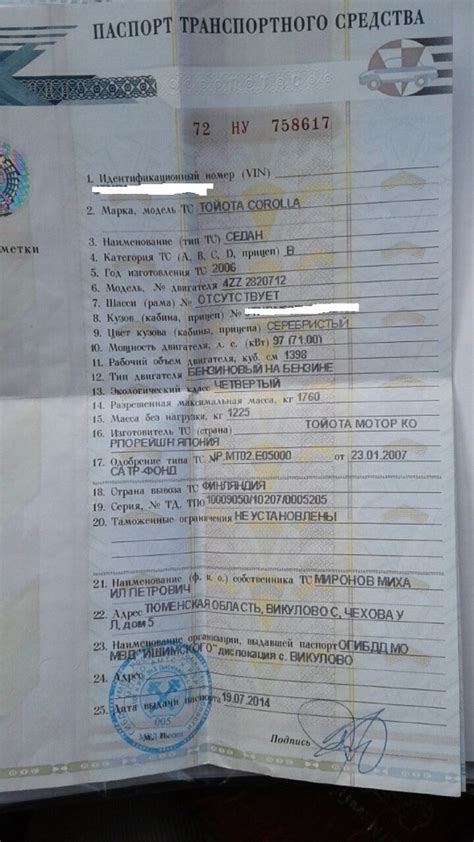 ПАСПОРТ ТРАНСПОРТНОГО СРЕДСТВА
72 НУ 758617
1. Идентификационный номер (VIN)
2. Марка, модель ТС ТОЙОТА COROLLA
3. Наименование (тип ТС) СЕДАН
4. Категория ТС (А, В, С, D, прицеп) В
метки
5. Год изготовления ТС 2006
6. Модель, № двигателя 4ZZ 2820712
7. Шасси (рама) № ОТСУТСТВУЕТ
8. Кузов (кабина, прицеп) №
9. Цвет кузова (кабины, прицепа) СЕРЕБРИСТЫЙ
10. Мощность двигателя, л. с. (кВт) 97 (71.00)
11. Рабочий объем двигателя, куб. см 1398
12. Тип двигателя БЕНЗИНОВЫЙ НА БЕНЗИНЕ
13. Экологический класс ЧЕТВЕРТЫЙ
14. Разрешенная максимальная масса, кг 1760
15. Масса без нагрузки, кг 1225
16. Изготовитель ТС (страна) ТОЙОТА МОТОР КО
РПОРЕЙШН ЯПОНИЯ
17. Одобрение типа ТС № P.MT02.E05000 от 23.01.2007
САТР-ФОНД
18. Страна вывоза ТС ФИНЛЯНДИЯ
19. Серия, № ТД, ТПО 10009050/10207/0005205
20. Таможенные ограничения НЕ УСТАНОВЛЕНЫ
21. Наименование (ф. и. о.) собственника ТС МИРОНОВ МИХА
ИЛ ПЕТРОВИЧ
22. Адрес ТЮМЕНСКАЯ ОБЛАСТЬ, ВИКУЛОВО С, ЧЕХОВА У
Л, дом 5
23. Наименование организации, выдавшей паспорт ОГИБДД МО
МВД "ИШИМСКОГО" дислокация с. ВИКУЛОВО
24. Адрес
25. Дата выдачи паспорта 19.07.2014
005
Подпись